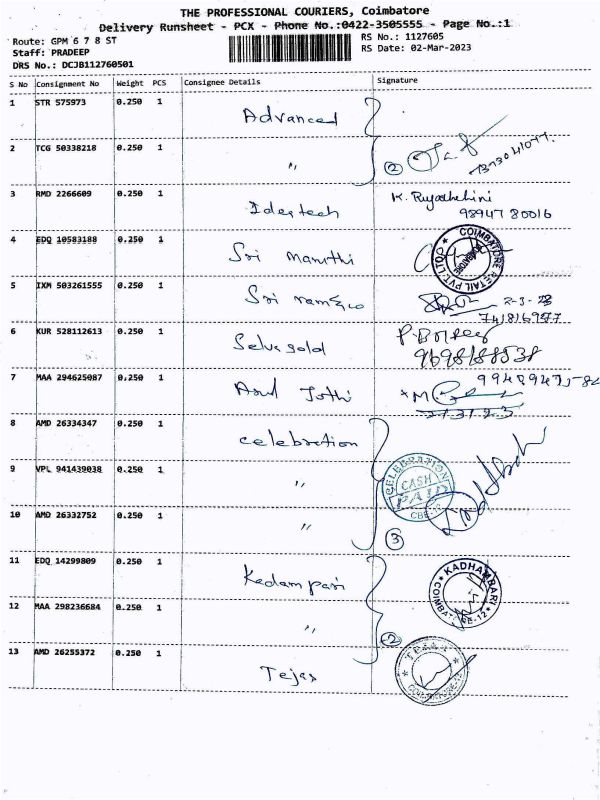 THE PROFESSIONAL COURIERS, Coimbatore
Delivery Runsheet - PCX - Phone No.:0422-3505555 - Page No.:1
Route: GPM 6 7 8 ST
RS No.: 1127605
Staff: PRADEEP
RS Date: 02-Mar-2023
DRS No.: DCJB112760501
S No Consignment No Weight PCS Consignee Details Signature
1 STR 575973 0.250 1 Advanced
2 TCG 50338218 0.250 1 〃 2
3 RMD 2266609 0.250 1 Ideatech
98947 80016
4 EDQ 10583188 0.250 1 Sri Maruthi COIMBATORE RETAIL PVT.LTD
5 IXM 503261555 0.250 1 2-3-23
6 KUR 528112613 0.250 1 Selvagold
7 MAA 294625087 0.250 1 Arul Jothi
8 AMD 26334347 0.250 1 celebration
9 VPL 941439038 0.250 1 〃 CELEBRATION CASH PAID CBE-12
10 AMD 26332752 0.250 1 〃 3
11 EDQ 14299809 0.250 1 Kadampari KADHAMBARI
12 MAA 298236684 0.250 1 〃 2
13 AMD 26255372 0.250 1 Tejas